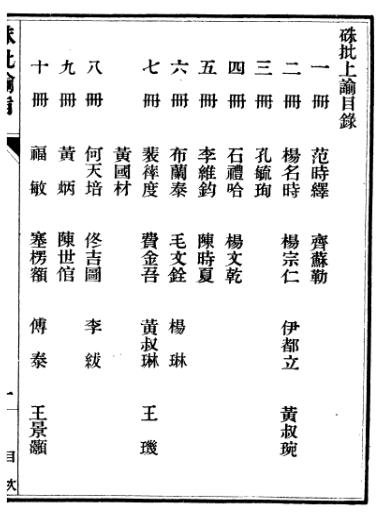 硃批上諭目錄
一冊 范時繹 齊蘇勒
二冊 楊名時 楊宗仁 伊都立 黃叔琬
三冊 孔毓珣
四冊 石禮哈 楊文乾
五冊 李維鈞 陳時夏
六冊 布蘭泰 毛文銓 楊琳
七冊 裴𢕑度 費金吾 黃叔琳 王璣
黃國材
八冊 何天培 佟吉圖 李紱
九冊 黃炳 陳世倌
十冊 福敏 塞楞額 傅泰 王景灝
硃批諭旨 目次